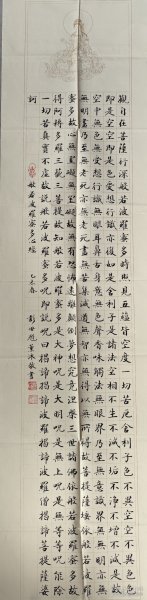 觀自在菩薩行深般若波羅蜜多時照見五蘊皆空度一切苦厄舍利子色不異空空不異色色
即是空空即是色受想行識亦復如是舍利子是諸法空相不生不滅不垢不淨不增不減是故
空中無色無受想行識無眼耳鼻舌身意無色聲香味觸法無眼界乃至無意識界無無明亦
無無明盡乃至無老死亦無老死盡無苦集滅道無智亦無得以無所得故菩提薩埵依般若波羅
蜜多故心無罣礙無罣礙故無有恐怖遠離顛倒夢想究竟涅槃三世諸佛依般若波羅蜜多故
得阿耨多羅三藐三菩提故知般若波羅蜜多是大神咒是大明咒是無上咒是無等等咒能除
一切苦真實不虛故說般若波羅蜜多咒即說咒曰揭諦揭諦波羅揭諦波羅僧揭諦菩提薩婆
訶
般若波羅蜜多心經 乙巳春 彭世 薰沐敬書